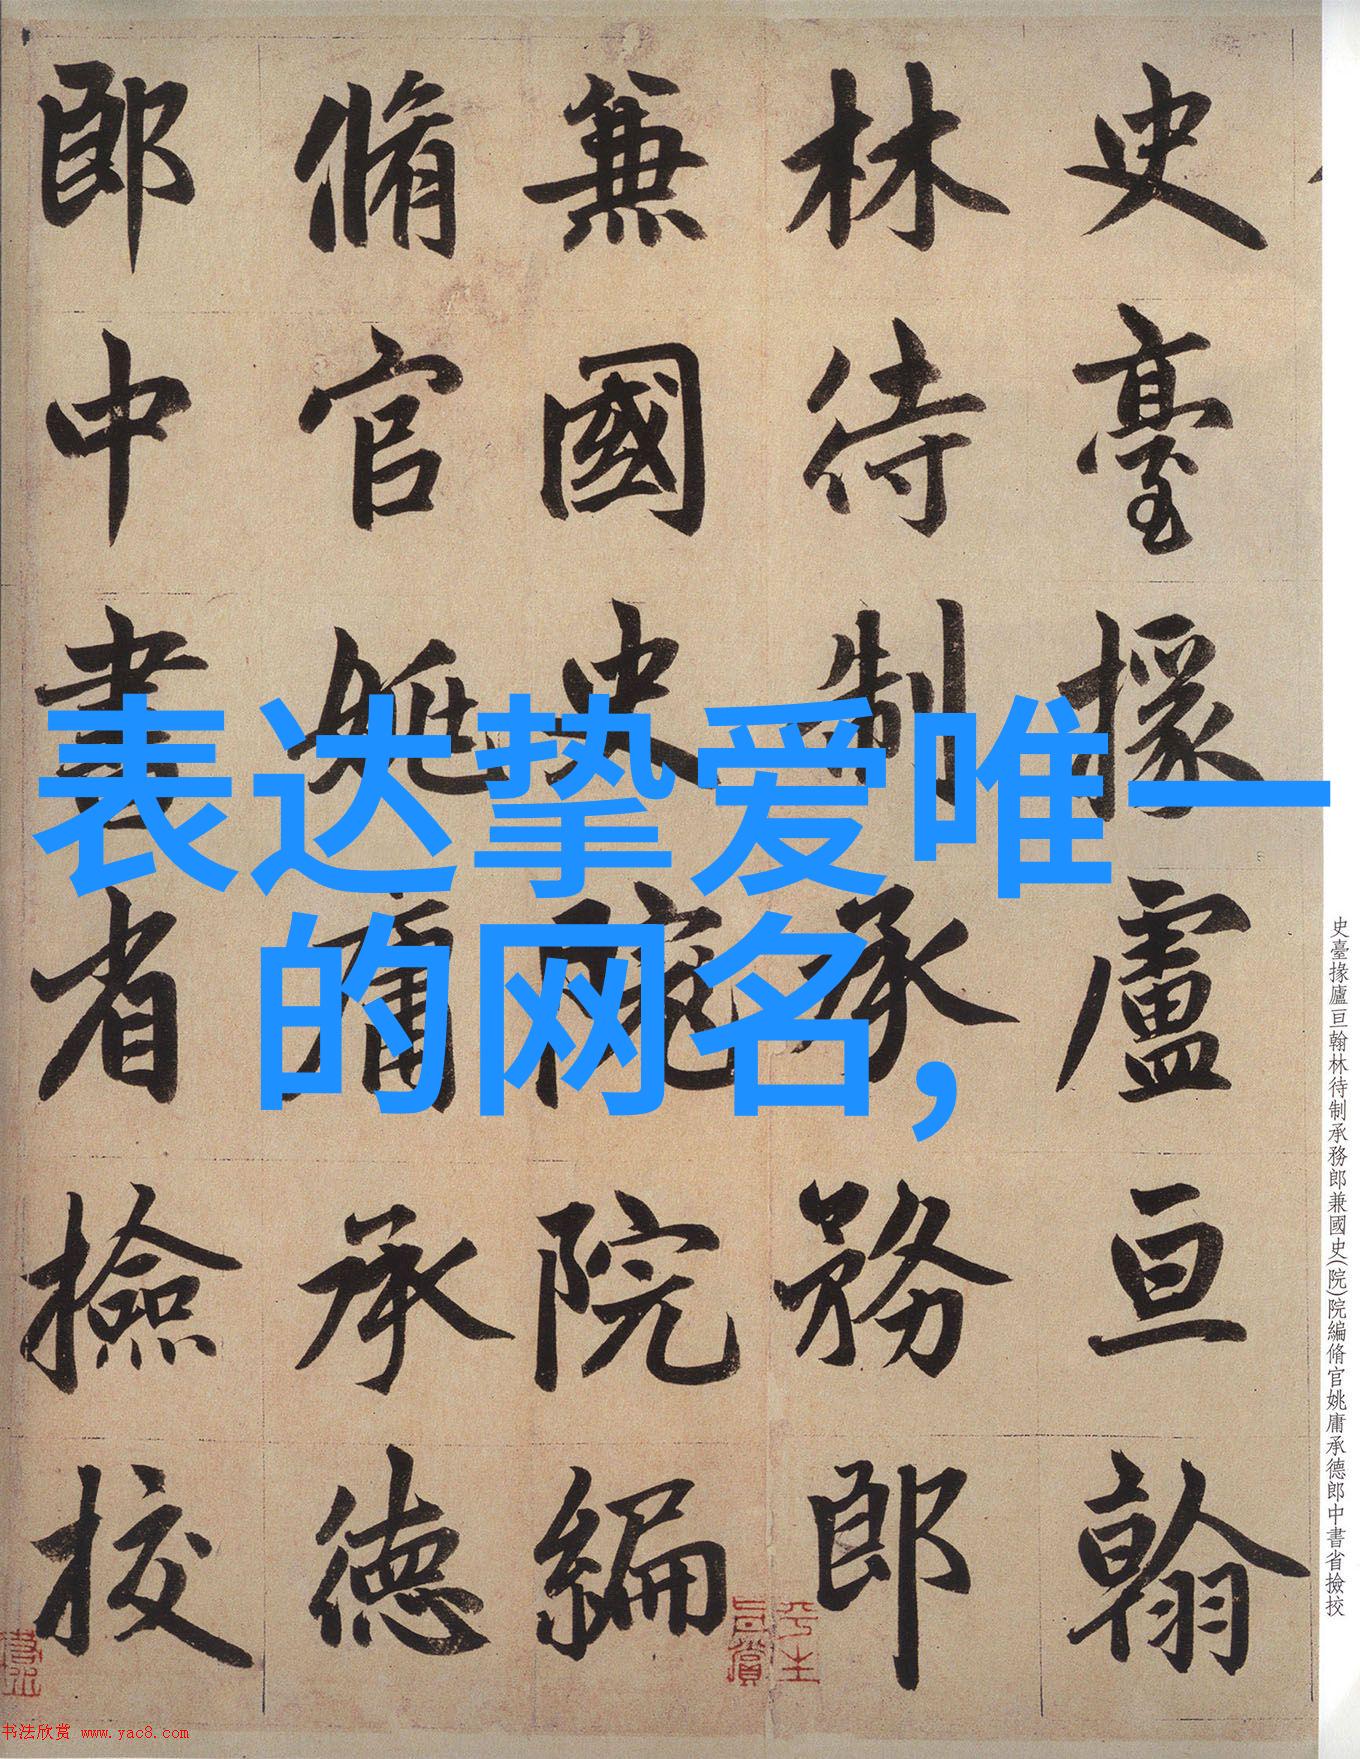 表达挚爱唯一
的网名,
史臺掾盧亘翰
林待制承務郎
兼國史院院編
脩官姚庸承德
郎中書省撿挍
史臺掾廬亘翰林待制承務郎兼國史(院)院編脩官姚庸承德郎中書省撿挍
书法欣赏 www.yac8.com